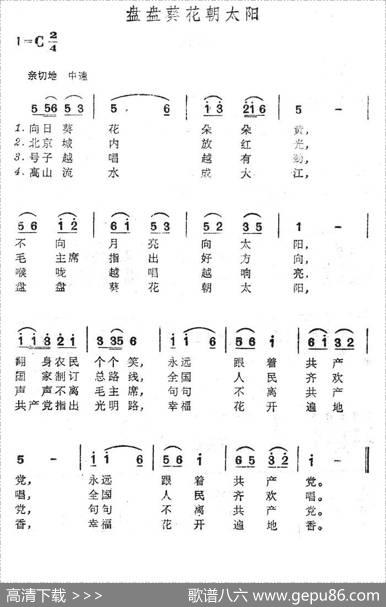 盘盘葵花朝太阳
1=C 2/4
亲切地 中速
5 56 5 3 | 5. 6 | i 3 2i 6 | 5 - |
1. 向日葵 花 朵朵 黄,
2. 北京城 内 放红 光,
3. 号子越 唱 越有 劲,
4. 高山流 水 成大 江,
5 6 i 2 | 6 i 5 3 | 5 2 5 3 | 1 - |
不向 月亮 向太 阳,
毛主席 指出 好方 向,
喉咙 越唱 越响 亮.
盘盘 葵花 朝太 阳,
翻身农民 个个笑, 永远 跟着 共产
国家制订 总路线, 全国 人民 齐欢
声声不离 毛主席, 句句 不离 共产
共产党指出 光明路, 幸福 花开 遍地
5 - | i i 6 | 5 i 6 | 6 5 3 2 | i - ‖
党, 永远 跟着 共产 党。
唱, 全国 人民 齐欢 唱。
党, 句句 不离 共产 党。
香, 幸福 花开 遍地 香。
高清下载 >>> 歌谱八六 www.gepu86.com